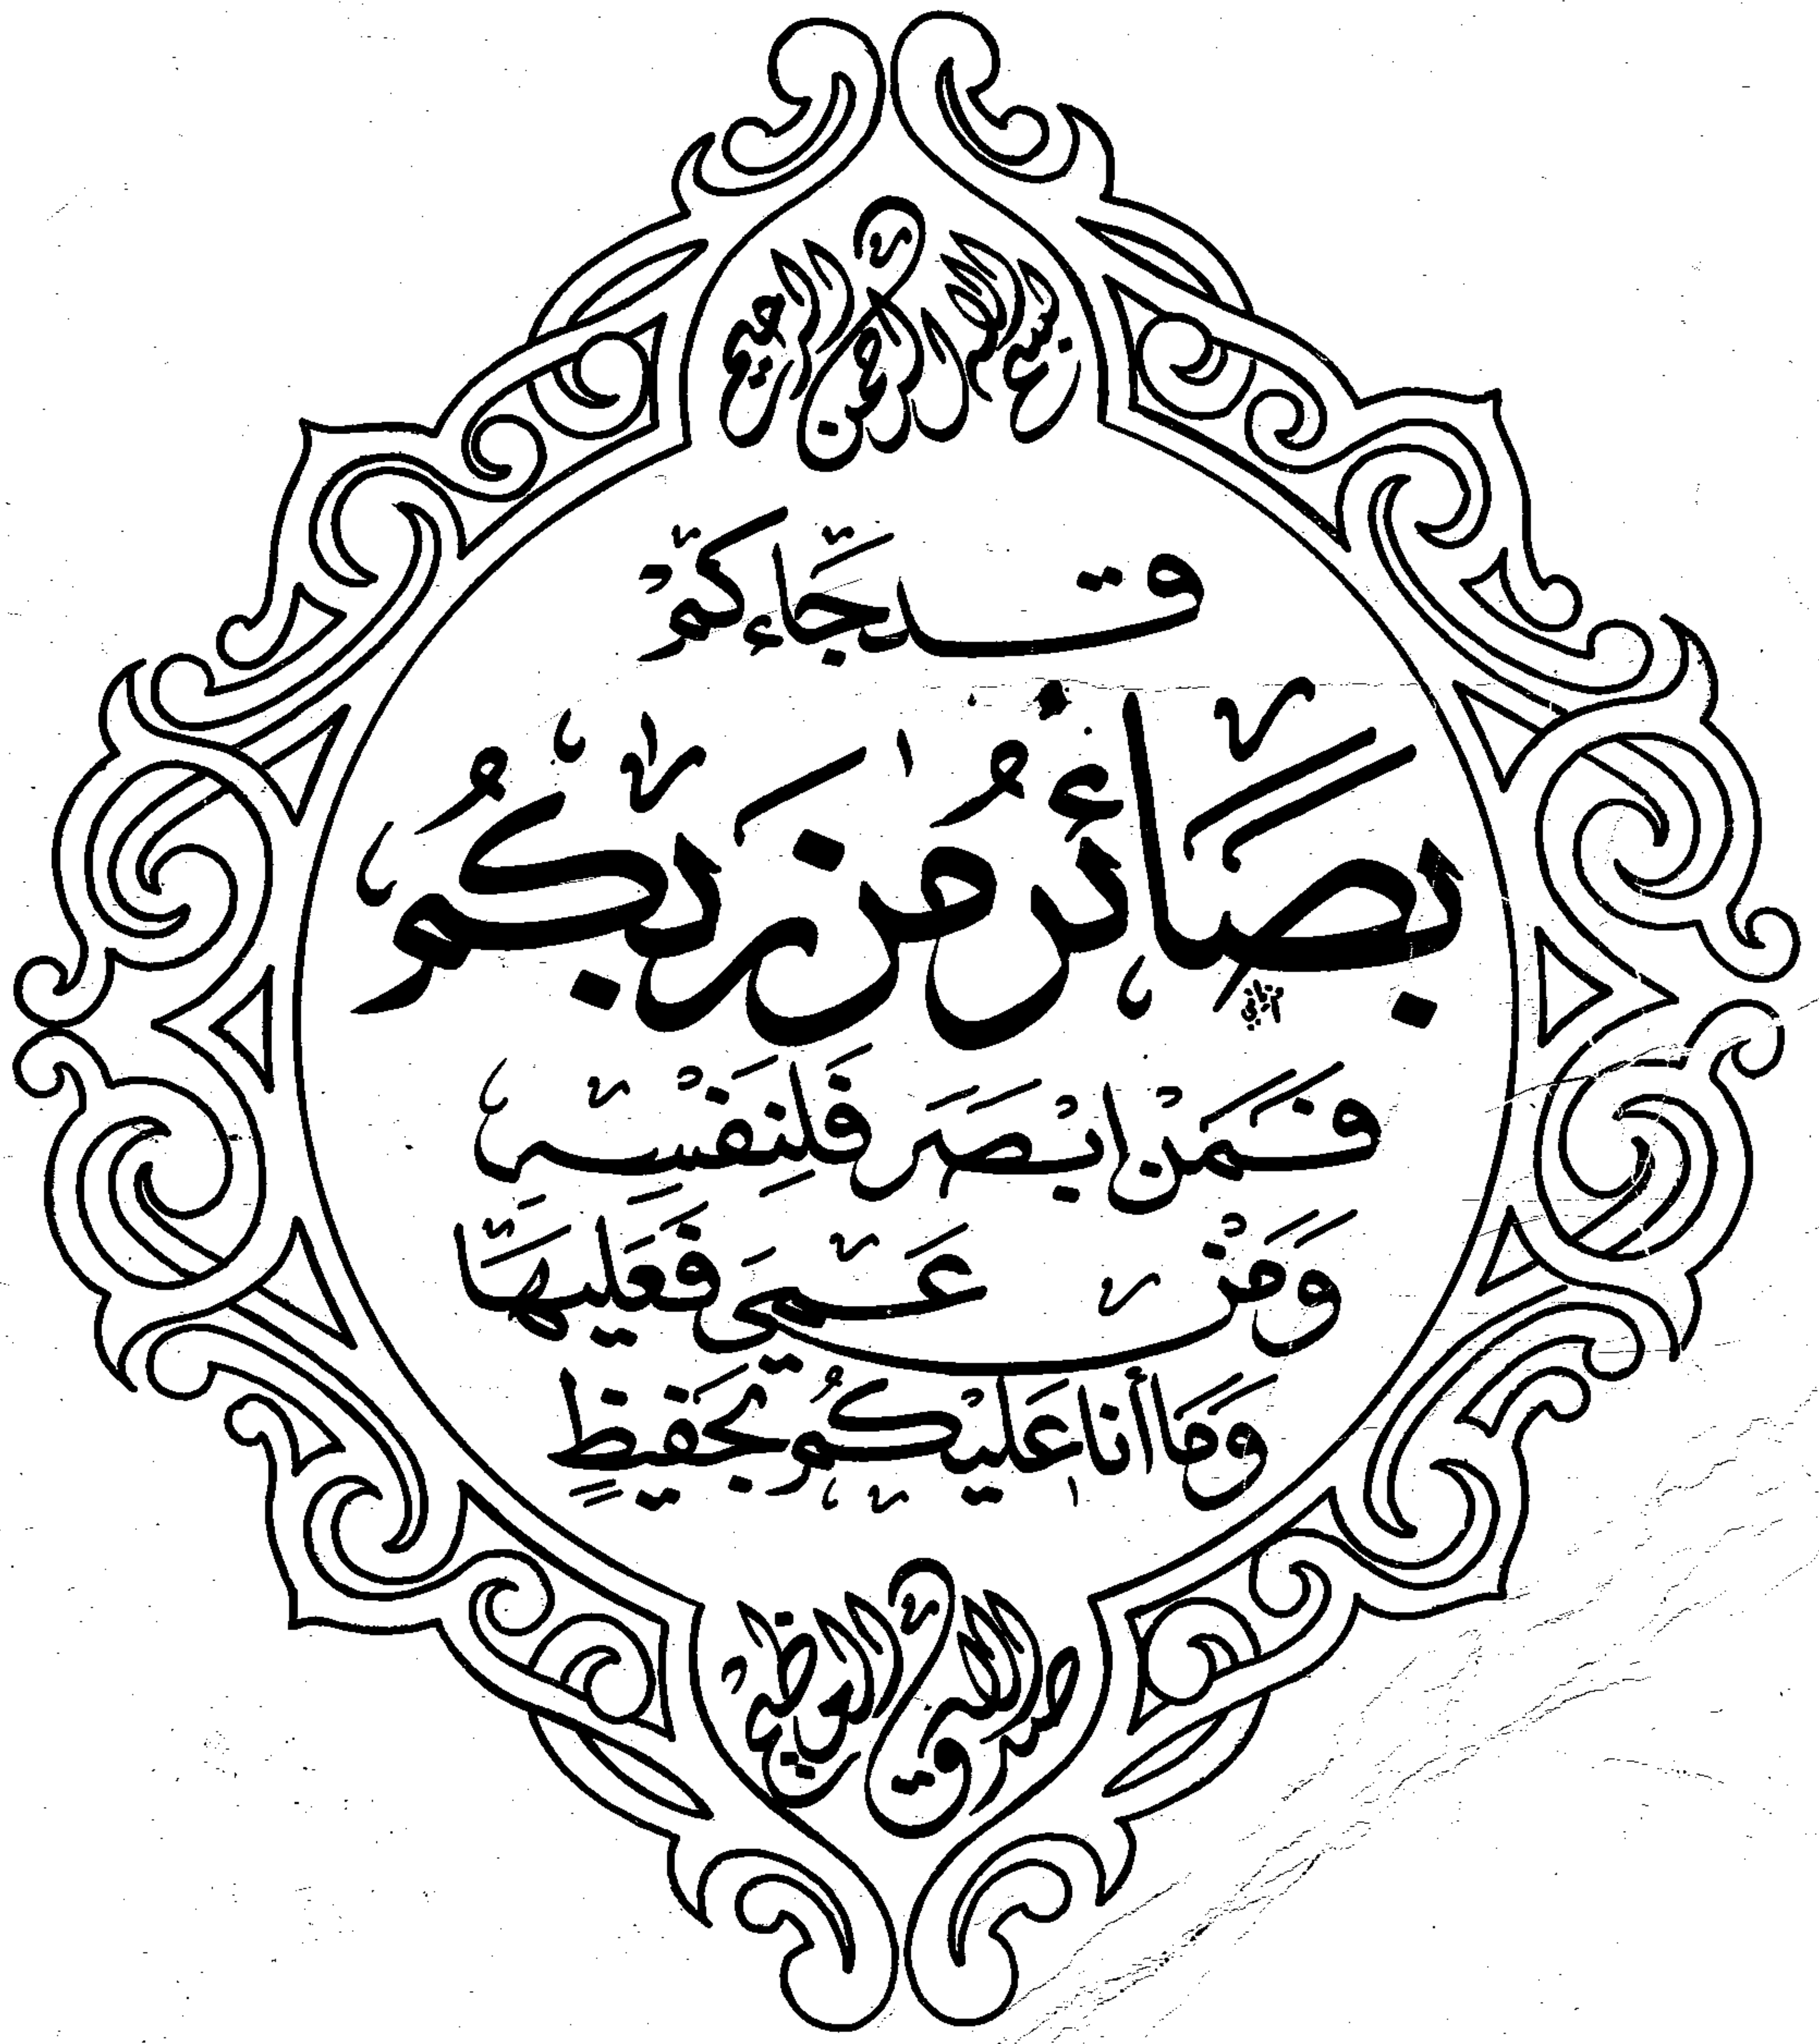 بسم الله الرحمن الرحيم
قد جَّاءكمْ
بصَّائرُ من رَبكمُ
فَمَنْ ابْصَرَ فَلِنَفْسه
وَمَنْ عَمَى فَعَليهَا
وَمَا أنا عَليكمُ بحَفيظٍ
صدق الله العظيم